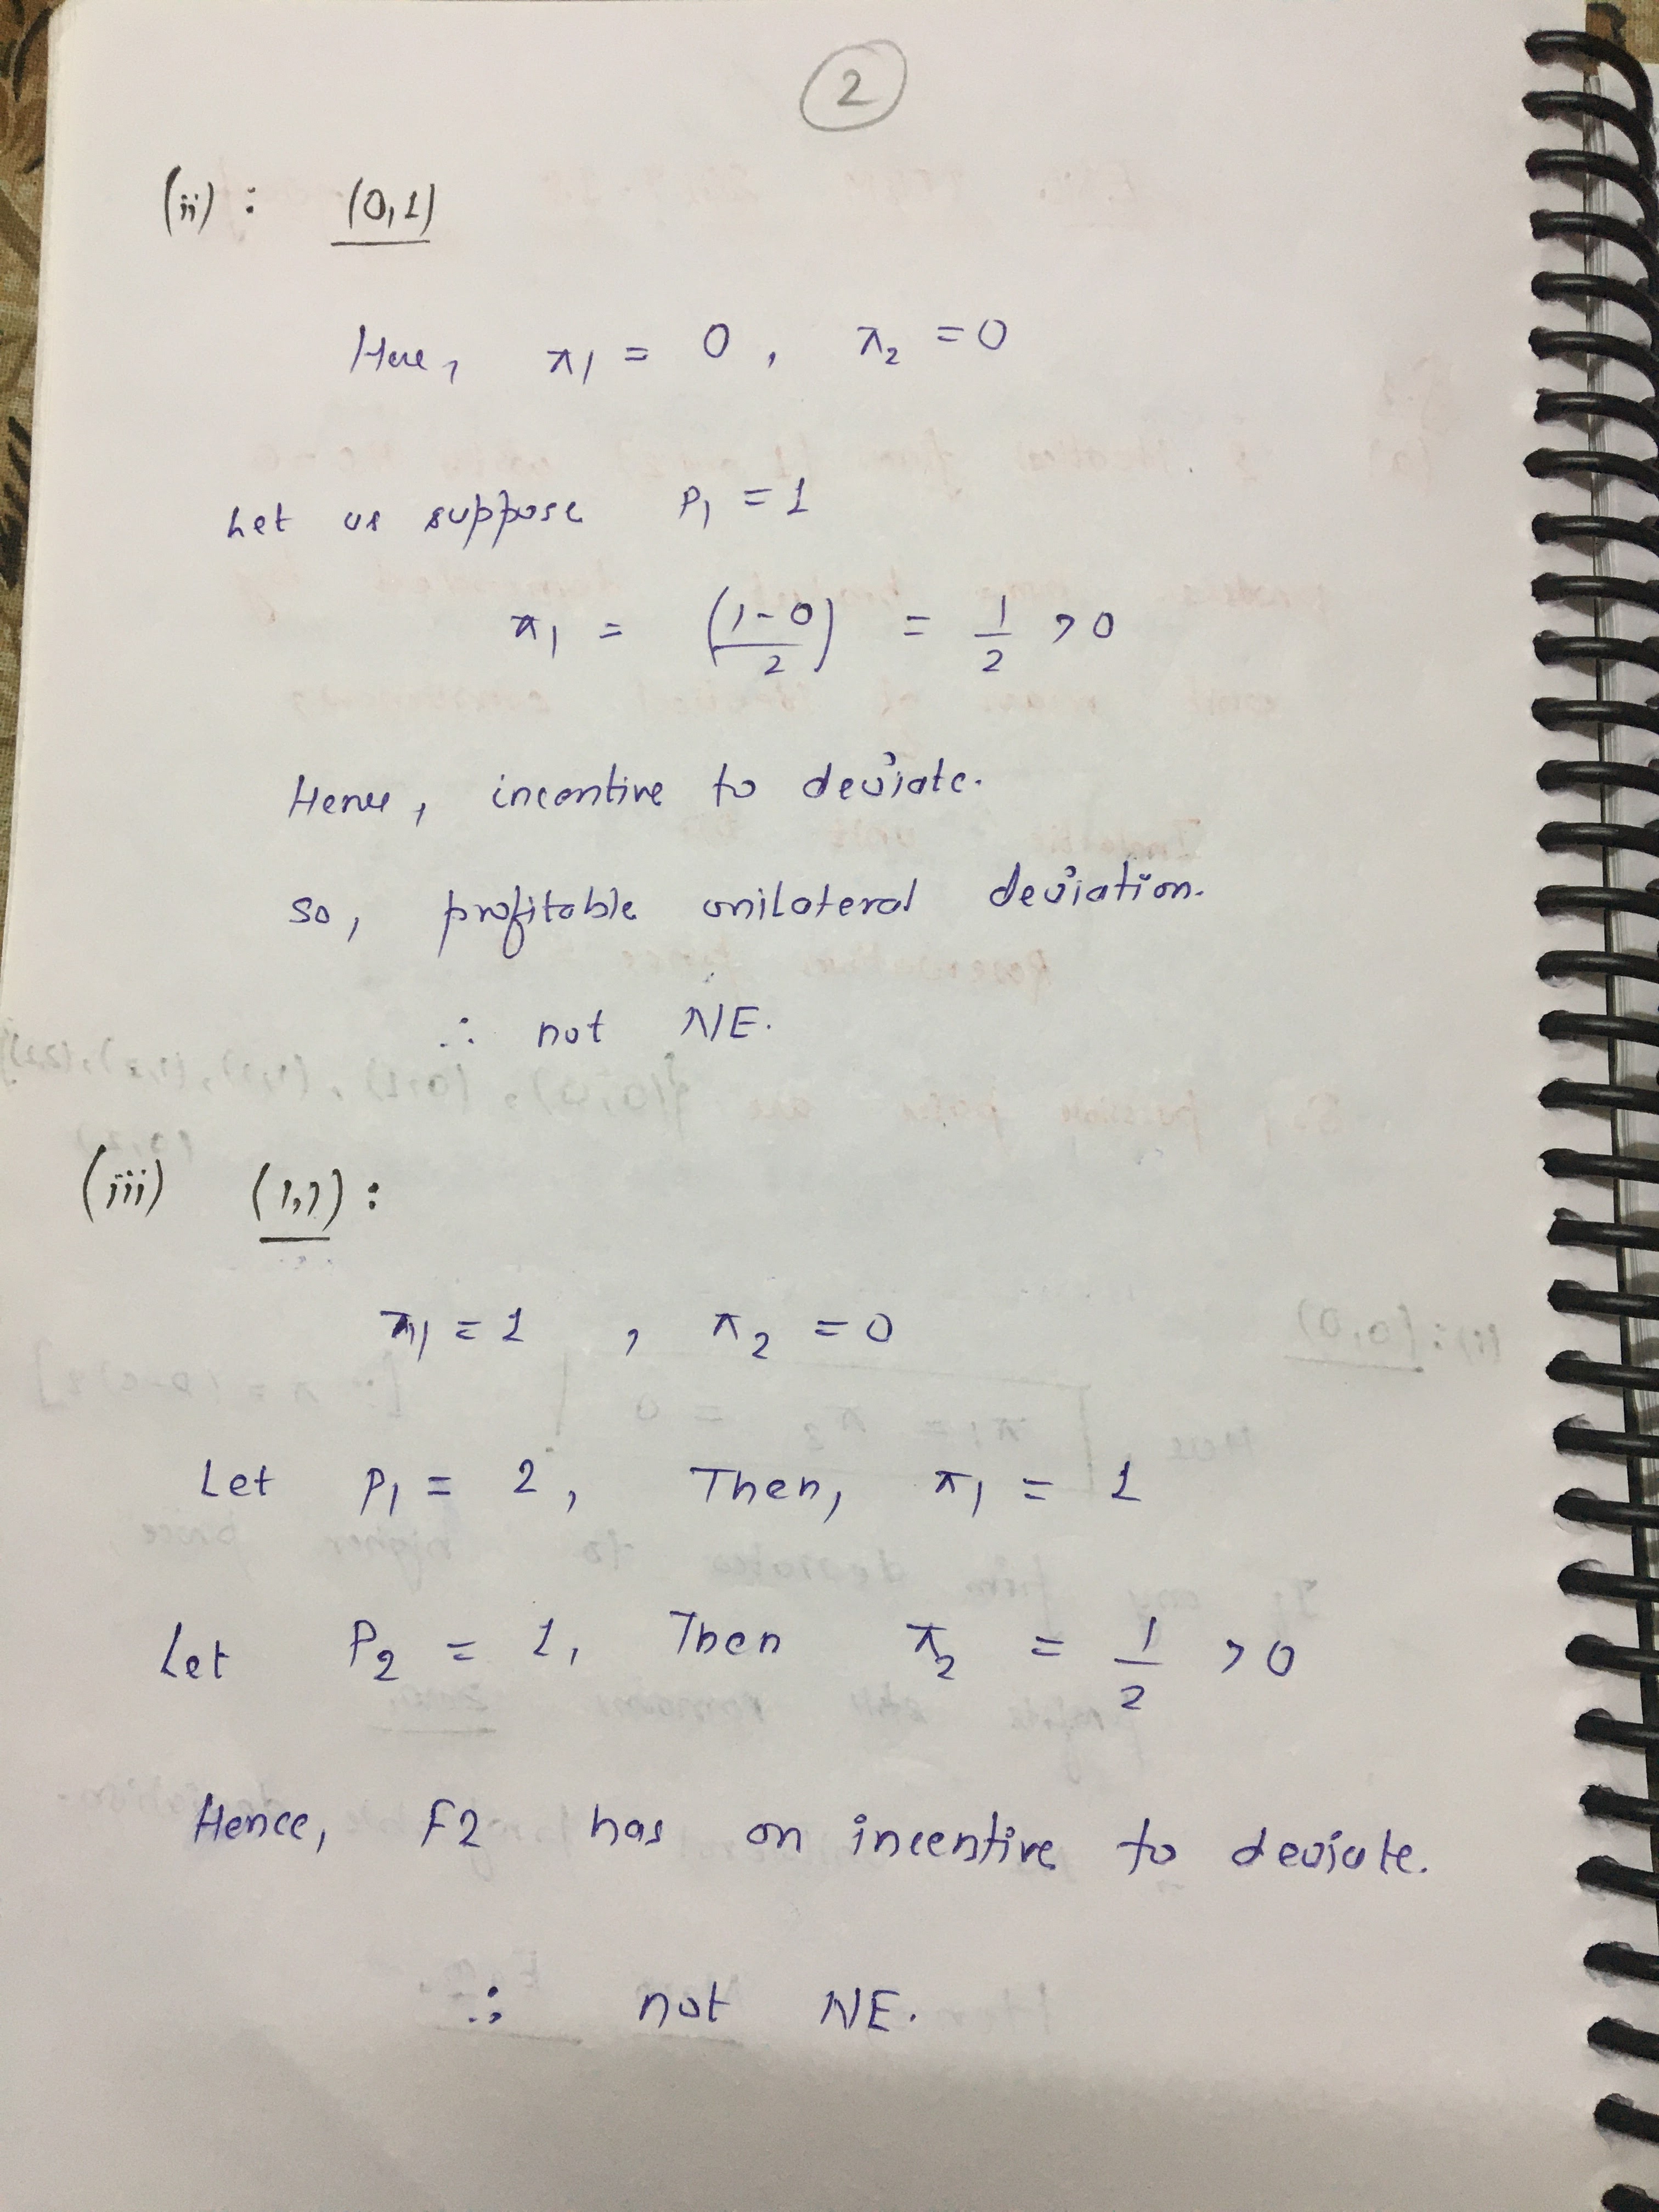 2
(ii) : (0,1)
Here, π1 = 0 , π2 = 0
Let us suppose P1 = 1
π1 = (1-0)/2 = 1/2 > 0
Hence, incentive to deviate.
so, profitable unilateral deviation.
∴ not NE.
(iii) (1,1) :
π1 = 1 , π2 = 0
Let P1 = 2, Then, π1 = 1
Let P2 = 1, Then π2 = 1/2 > 0
Hence, F2 has an incentive to deviate.
∴ not NE.